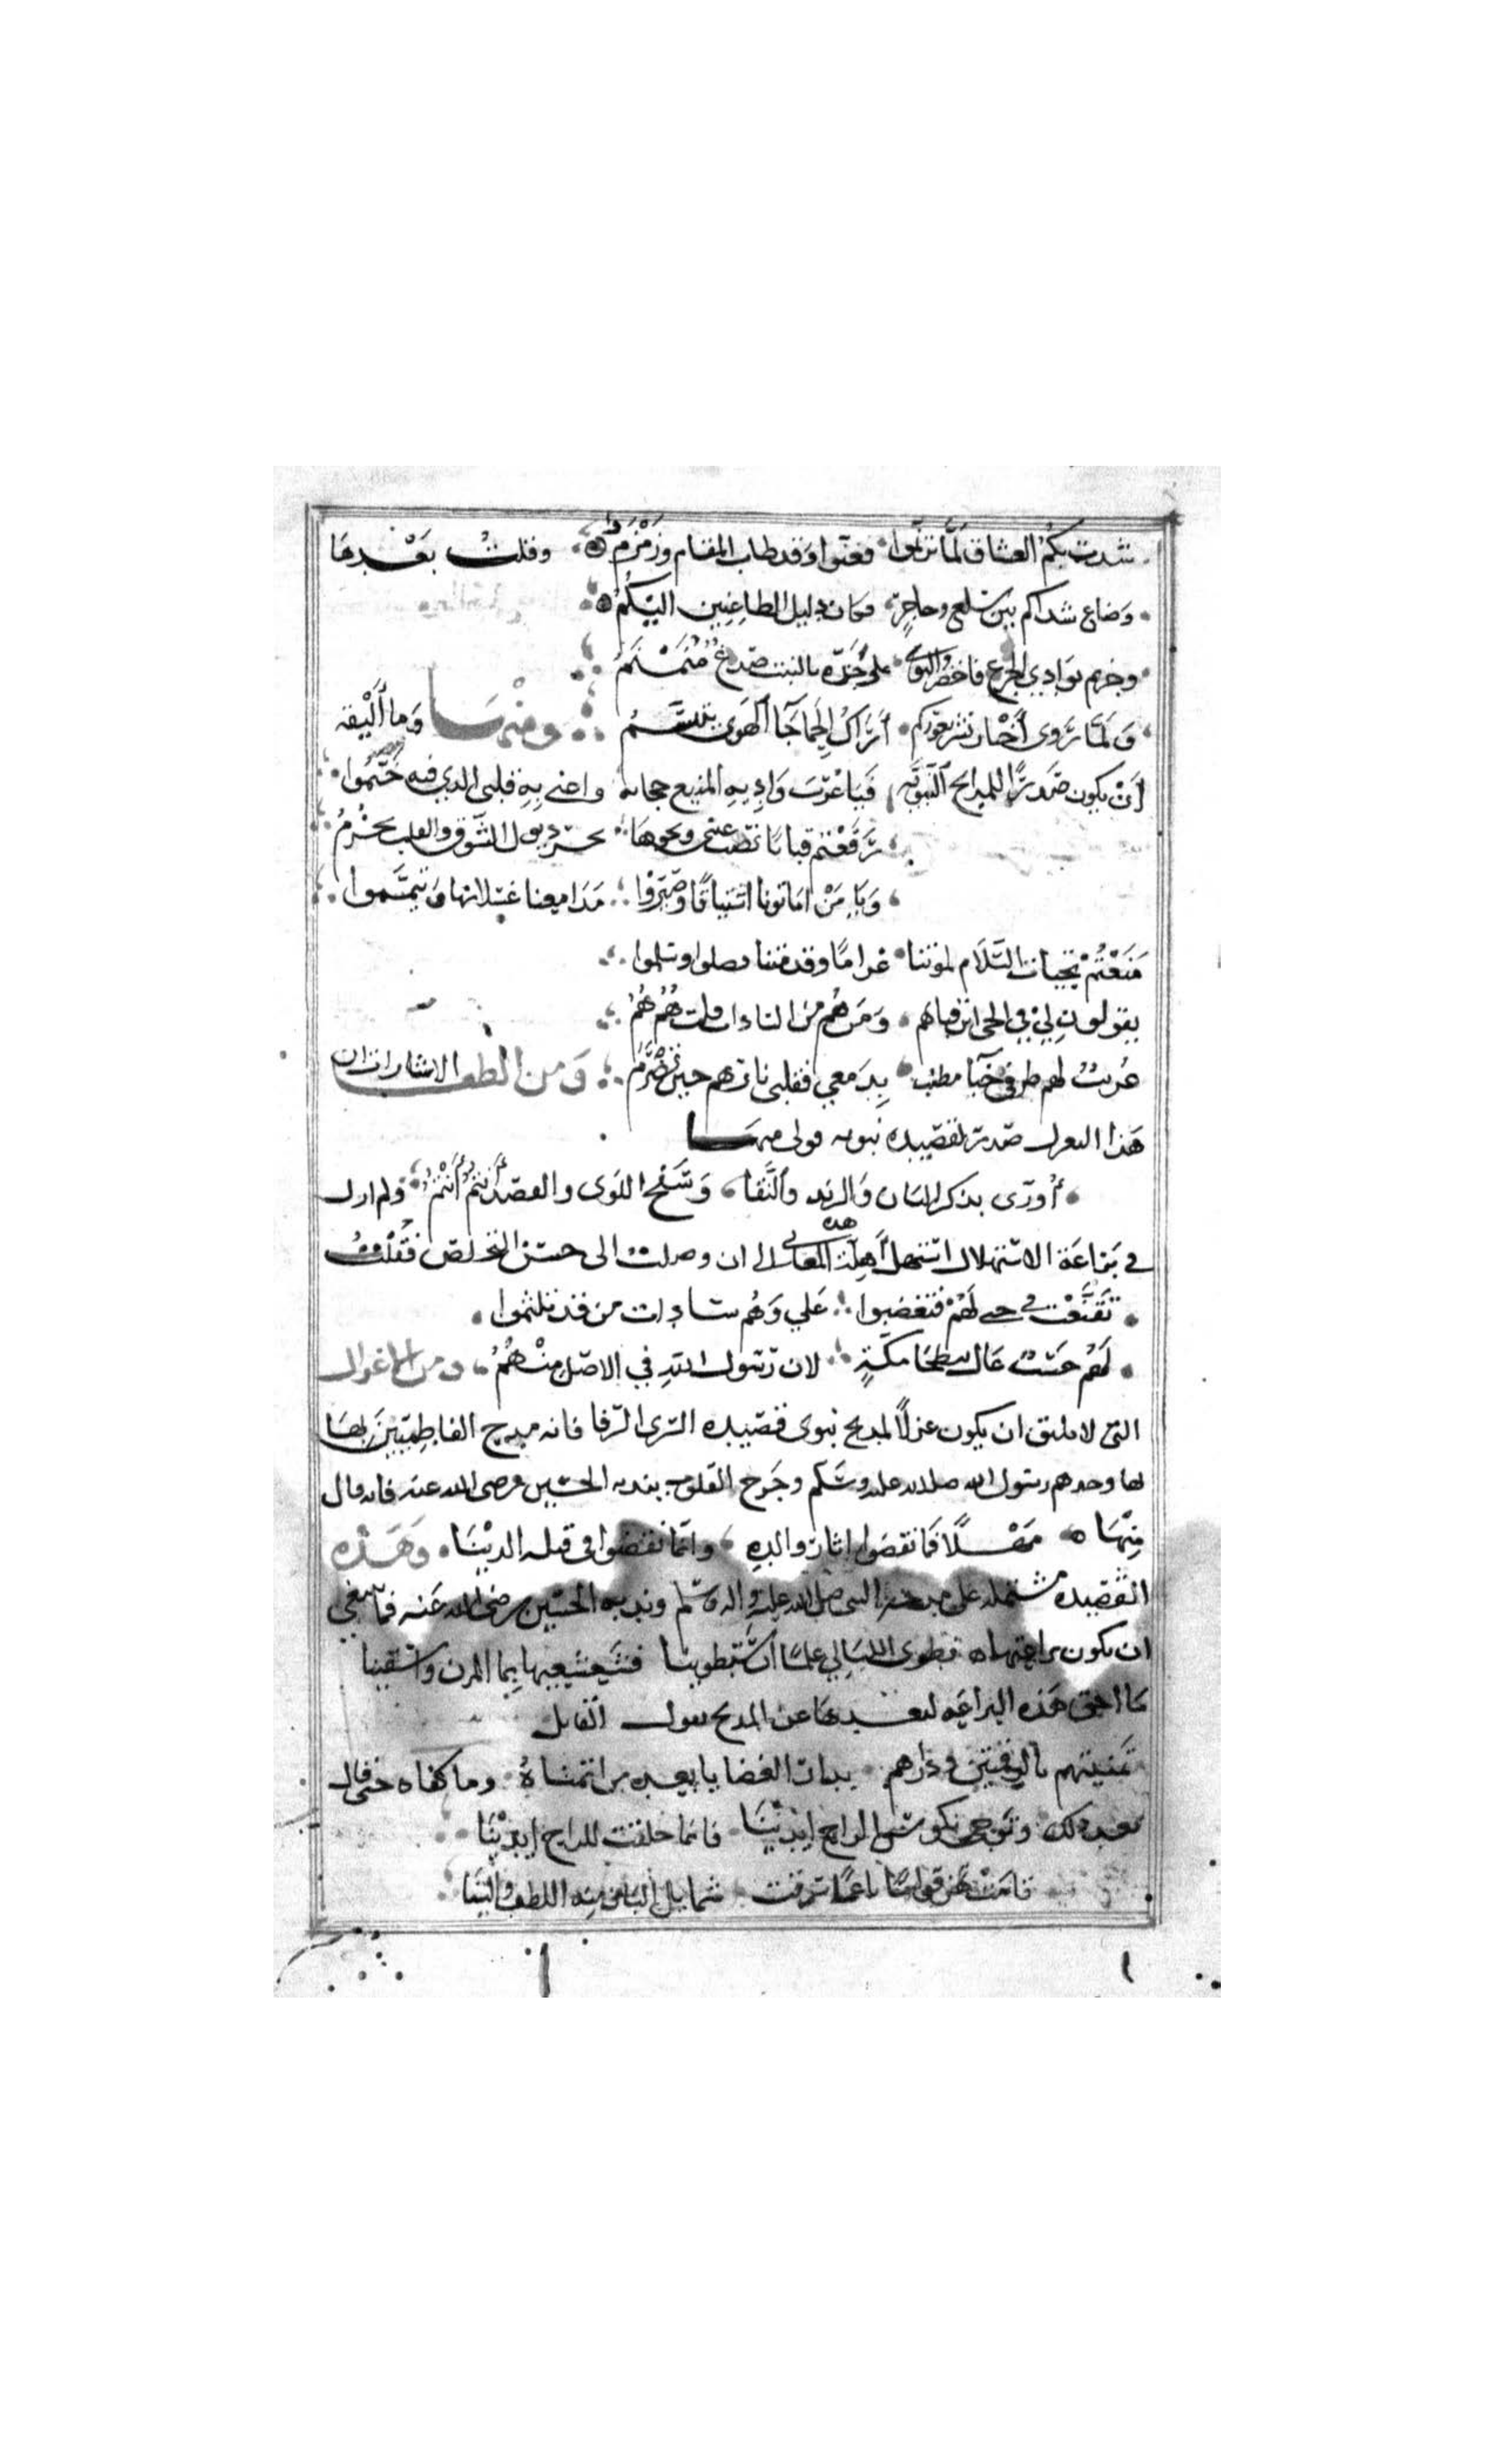 شدت بكم العشاق لما ترنموا فغنوا وقد طاب المقام وزمزم وقلت بعدها
وضاع شذاكم بين سلع وحاجر فكان دليل الظاعنين اليكم
وجزتم بوادي الجزع فاخضر والتوى على خده بالنبت صدغ منمنم
ولما تروى أخبار نشر ثغوركم أراك الحما جآ الهوى يتنسم ومنها وما أليقه
أن يكون صَدرًا للمدايح النبويه فيا عرب واديه المنيع حجابه واعني به قلبي الذي فيه خيموا
رفعتم قبابًا نصب عيني ونحوها تجر ذيول الشوق والقلب يجزم
ويا من اماتونا اشتياقًا وصيروا مدامعنا غسلا لنا وتيمموا
منعتم تحيات السلام لموتنا غرامًا وقد متنا فصلوا وسلموا
يقولون لي في الحي اين قبابهم ومن هم من السادات قلت هم هم
عريب لهم طرفي خبآ مطنب بدمعي فقلبي نارهم حين تضرم ومن الطف الاشارات ان
هذا الغزل صدر لقصيده نبويه قولي منها
أورى بذكر البان والرند والنقا وسفح اللوى والقصد أنتم أنتم ولم ازل
في براعة الاستهلال استهل أهلة هذه المعاني الى ان وصلت الى حسن التخلص فقلت
تقنعت في حبي لهم فتعصبوا علي وهم سادات من قد تلثموا
لهم حسب عال ببطحا مكة لان رسول الله في الاصل منهم ومن الاغزال
التي لا يليق ان يكون غزلًا لمديح نبوى قصيده السرى الرفا فانه مدح الفاطميين بها
بها وجدهم رسول الله صلى الله عليه وسلم وجرح القلوب بندبه الحسين رضى الله عنه فانه قال
منها مهلًا فما نقضوا اثار والده وانما نقضوا في قبله الدينا وهذه
القصيده مشتمله على مدح النبي صلى الله عليه واله وسلم وندبه الحسين رضى الله عنه فما ينبغي
ان يكون براعتها نطوى الليالي علمًا ان ستطوينا فشعشعيها بما المزن واسقينا
ما احق هذه البراعه لبعدها عن المديح بقول القايل
تمنيتهم بالرقمتين ودارهم بدات الغضا يا بعد من اتمناه وما كفاه حتى قال
بعد ذلك وتوجي بكوس الراح ايدينا فانما خلقت للراح ايدينا
قامت تهز قوامًا ناعمًا سرقت شمايل البان منه اللطف واللينا